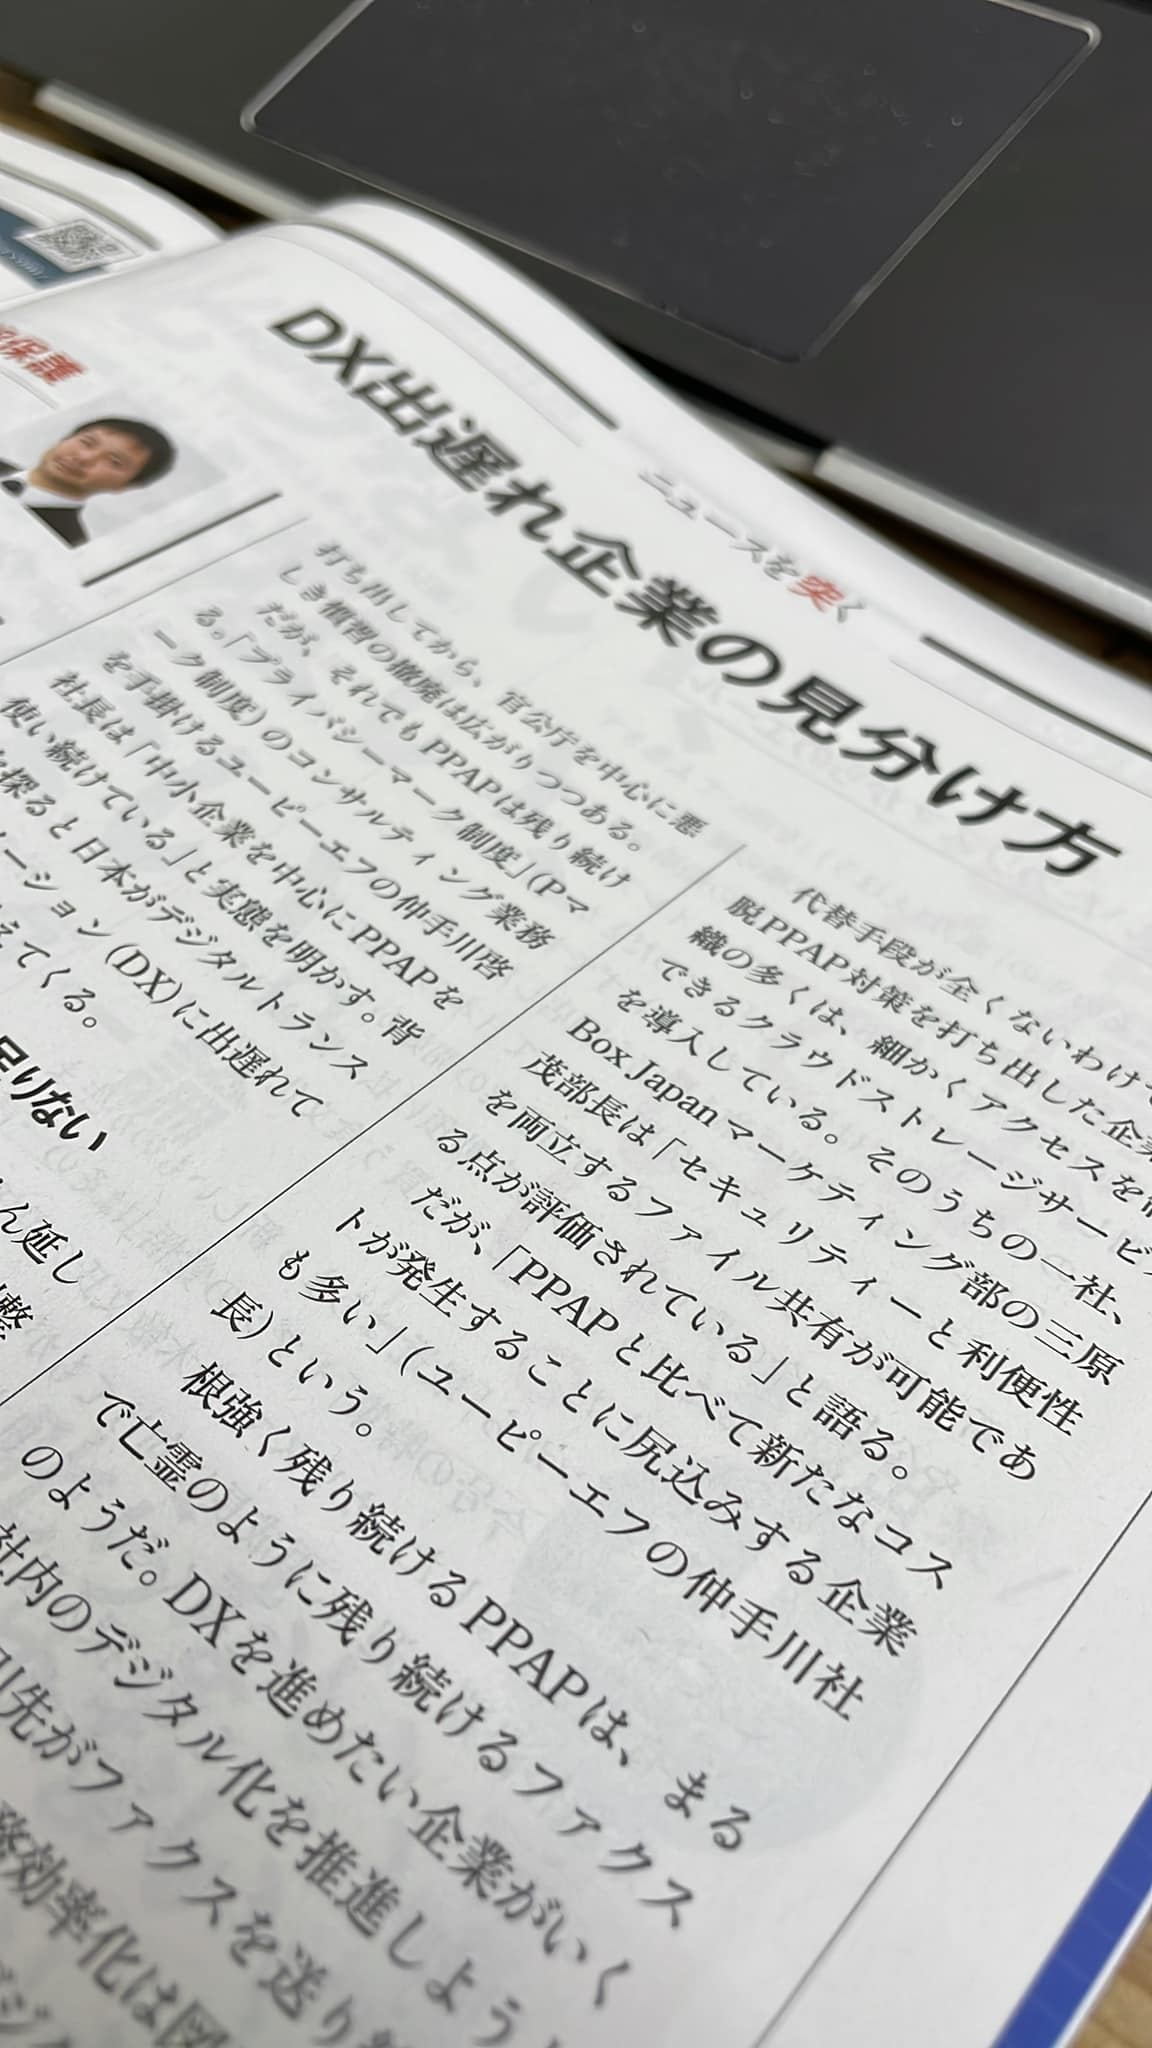 保護
ニュースを突く
DX出遅れ企業の見分け方
打ち出してから、官公庁を中心に悪
しき慣習の撤廃は広がりつつある。
だが、それでもPPAPは残り続け
る。「プライバシーマーク制度」(Pマ
ーク制度)のコンサルティング業務
を手掛けるユーピーエフの仲手川啓
社長は「中小企業を中心にPPAPを
使い続けている」と実態を明かす。背
探ると日本がデジタルトランス
ーション(DX)に出遅れて
えてくる。
足りない
ん延し
代替手段が全くないわけで
脱PPAP対策を打ち出した企業
織の多くは、細かくアクセスを
できるクラウドストレージサービ
を導入している。そのうちの一社、
Box Japanマーケティング部の三原
茂部長は「セキュリティーと利便性
を両立するファイル共有が可能であ
る点が評価されている」と語る。
だが、「PPAPと比べて新たなコス
トが発生することに尻込みする企業
も多い」(ユーピーエフの仲手川社
長)という。
根強く残り続けるPPAPは、まる
で亡霊のように残り続けるファクス
のようだ。DXを進めたい企業がいく
社内のデジタル化を推進しよう
先がファクスを送り
効率化は